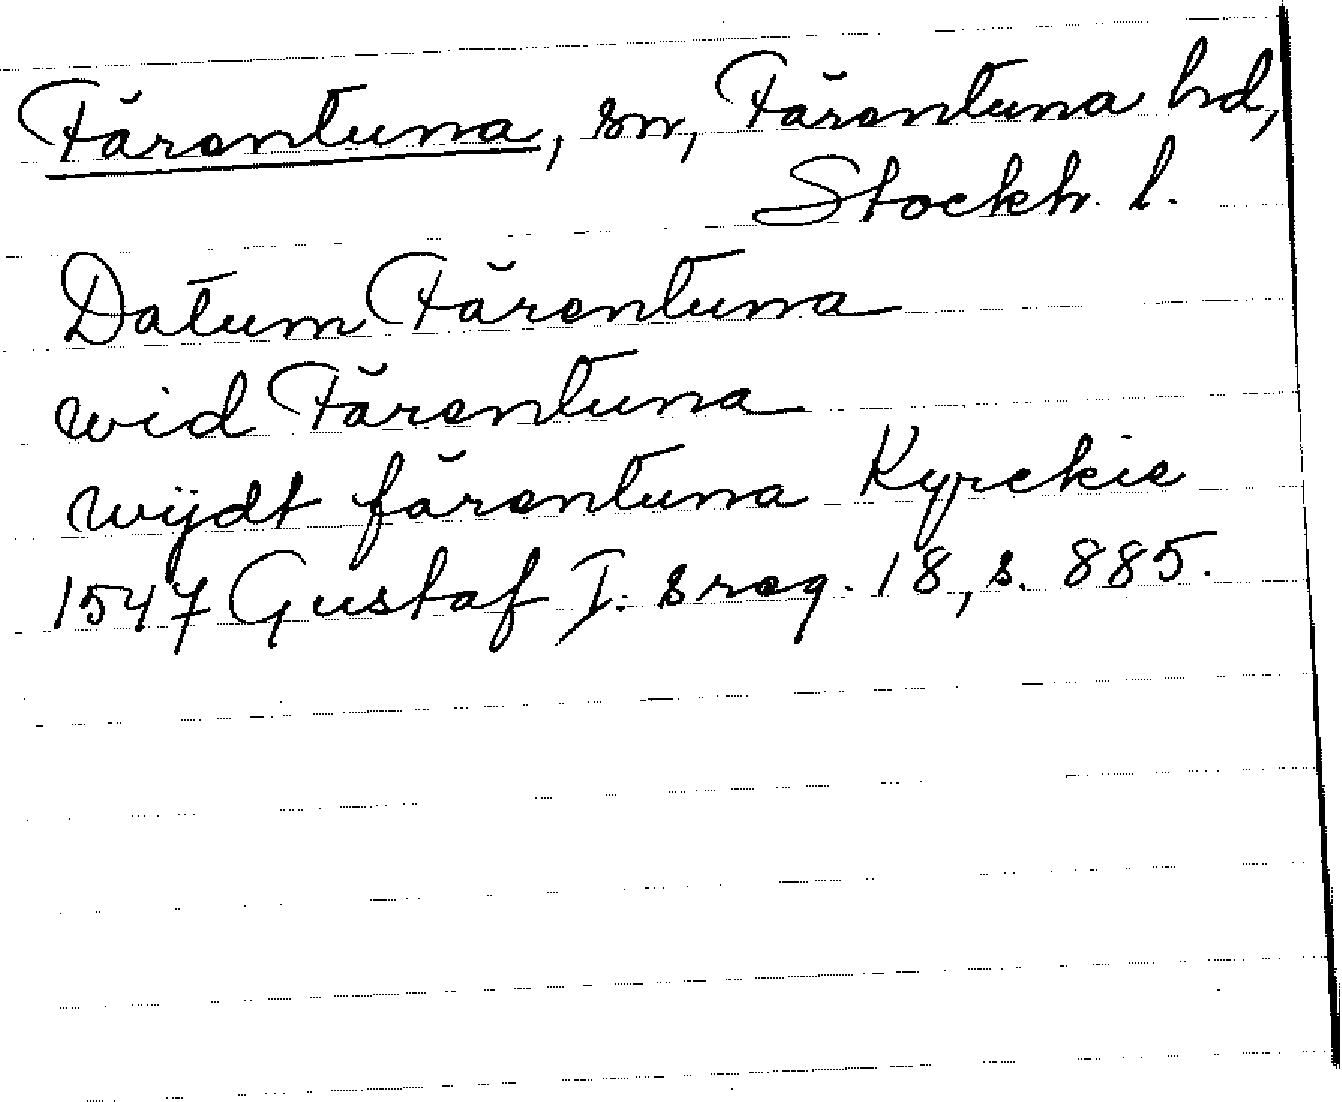 Färentuna, sn, Färentuna hd,
Stockh. l.
Datum Färentuna
wid Färentuna
wijdt färentuna Kyrckie
1547 Gustaf I:s reg. 18, s. 885.